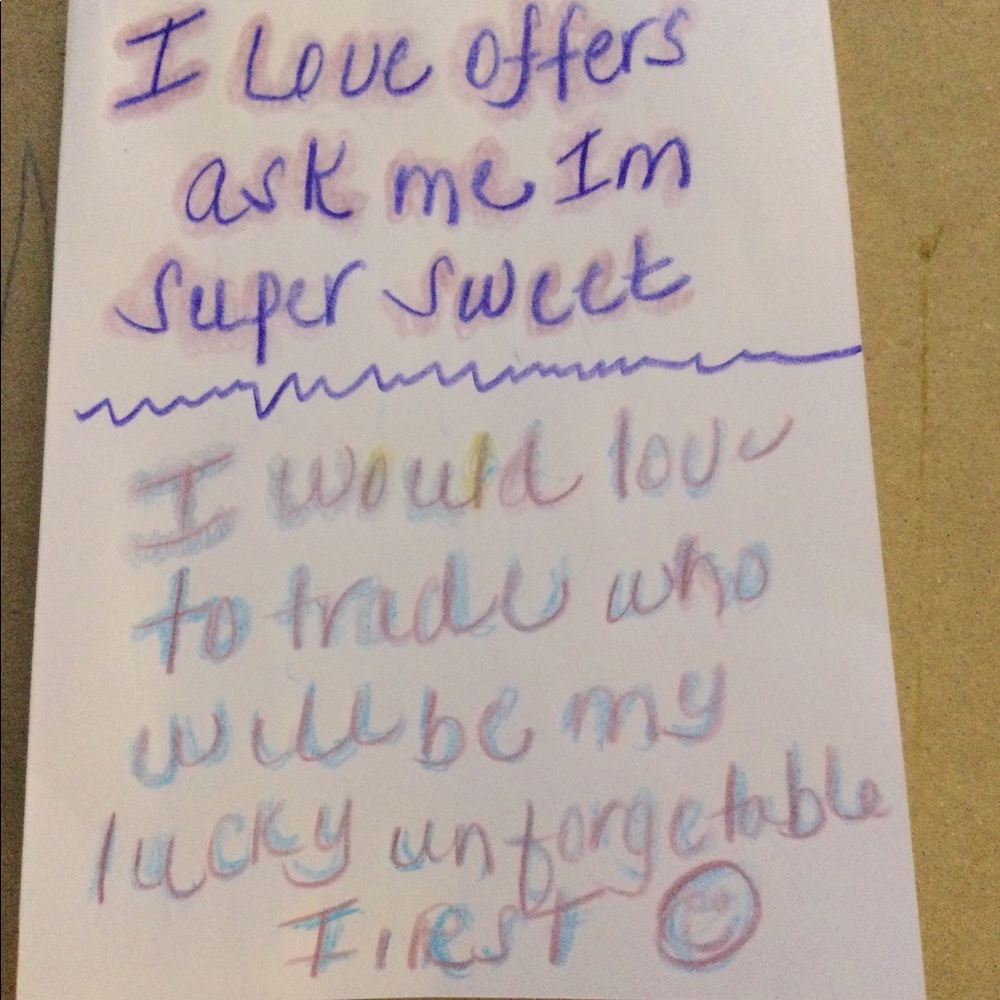 I Love offers
ask me Im
super sweet
I would love
to trade who
will be my
lucky unforgetable
FIRST